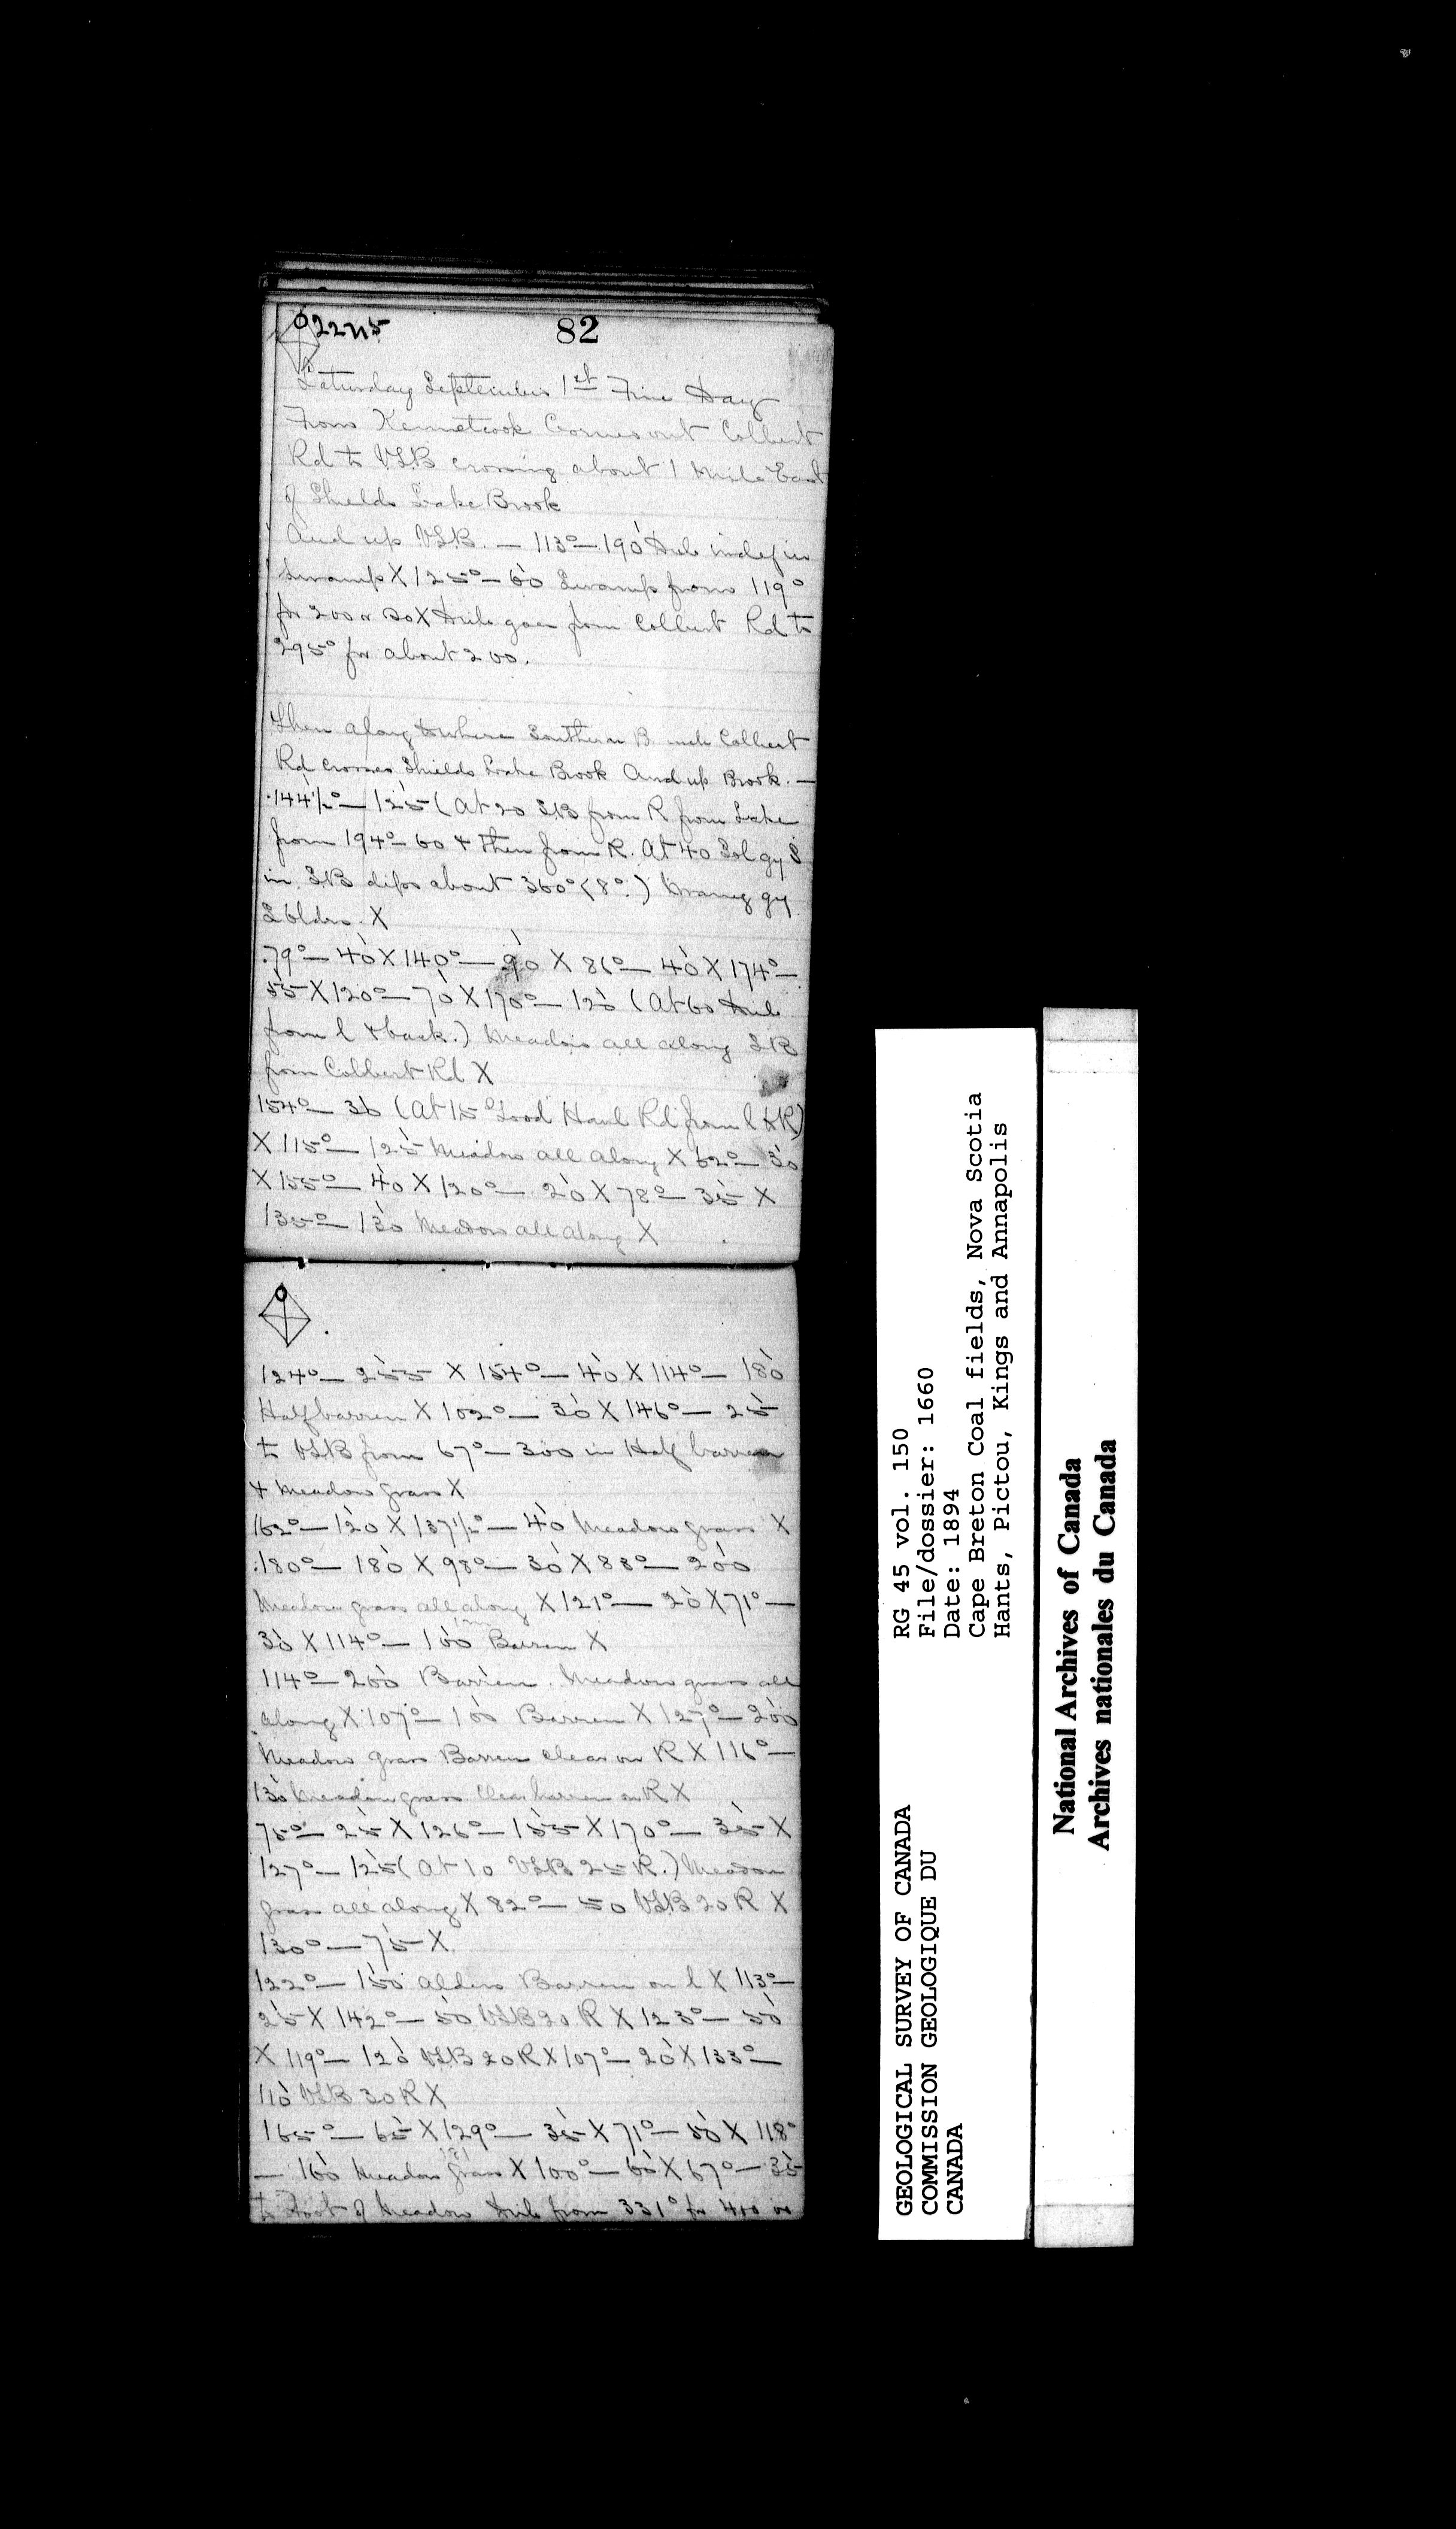 82
Saturday September 1st Fine Day
From Kennetcook Corner out Colbert
Rd to VSB crossing about 1 mile East
of Shields Lake Brook
And up VSB. — 113° — 190 in
Swamp X 125° — 60 Swamp from 119°
for 200 or so X goes from Colbert Rd to
295° for about 200.
Then along to where Southern Colbert
Rd crosses Shields Lake Brook And up Brook. —
144½° — 125 (At 20 SB from R from Lake
from 194° — 60 & then from R. At 40
in SB dips about 360° (8°.) Many gy
S bldrs. X
79° — 40 X 140° — 90 X 86° — 40 X 174° —
55 X 120° — 70 X 170° — 120 (At 60
from l & back.) Meadow all along SB
from Colbert Rd X
154° — 30 (At 15 Good Haul Rd from l & R)
X 115° — 125 Meadow all along X 62° — 30
X 155° — 40 X 120° — 20 X 78° — 35 X
135° — 130 Meadow all along X
124° — 255 X 154° — 40 X 114° — 180
Half barren X 102° — 30 X 146° — 25
to VSB from 67° — 300 in Half barren
& Meadow grass X
162° — 120 X 137½° — 40 Meadow grass X
180° — 180 X 98° — 30 X 88° — 200
Meadow grass all along X 121° — 20 X 71° —
30 X 114° — 100 Barren X
114° — 200 Barren. Meadow grass all
along X 107° — 100 Barren X 127° — 200
Meadow grass Barren clear on R X 116° —
130 Meadow grass Clear barren on R X
75° — 25 X 126° — 155 X 170° — 35 X
127° — 125 (At 10 VSB 25 R.) Meadow
grass all along X 82° — 50 VSB 20 R X
130° — 75 X
122° — 150 Alders Barren on l X 113° —
25 X 142° — 50 VSB 20 R X 123° — 50
X 119° — 120 VSB 20 R X 107° — 20 X 133° —
110 VSB 30 R X
165° — 65 X 129° — 35 X 71° — 50 X 118°
— 160 Meadow grass X 100° — 60 X 67° — 35
to Foot of Meadow from 331° for 400 or
GEOLOGICAL SURVEY OF CANADA
COMMISSION GEOLOGIQUE DU
CANADA
RG 45 vol. 150
File/dossier: 1660
Date: 1894
Cape Breton Coal fields, Nova Scotia
Hants, Pictou, Kings and Annapolis
National Archives of Canada
Archives nationales du Canada